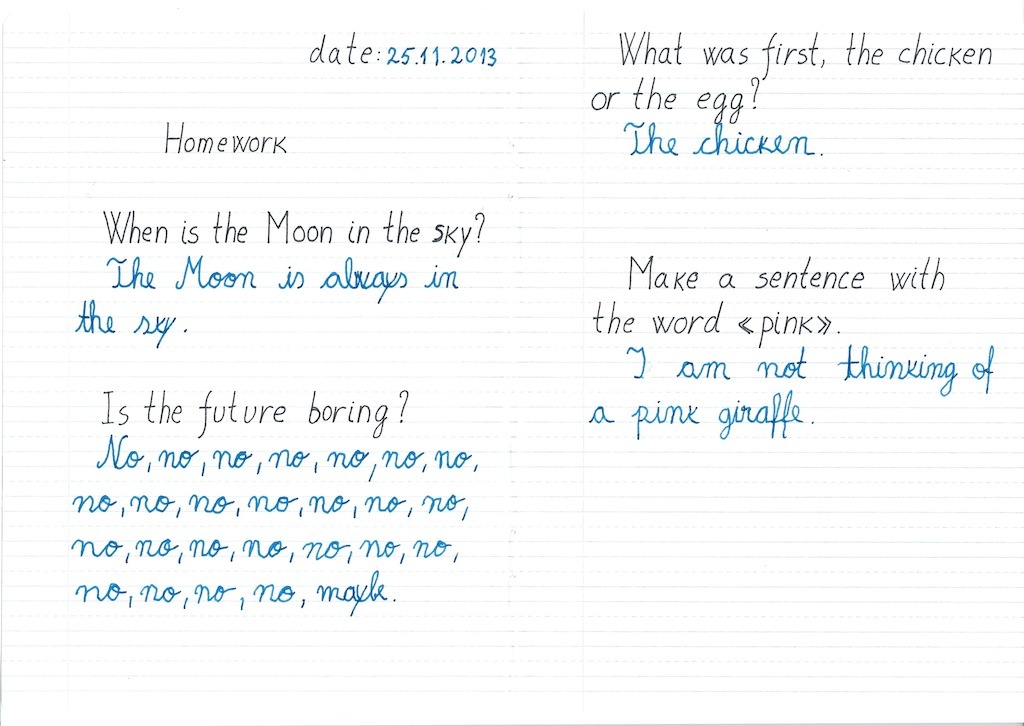 date: 25.11.2013
Homework
When is the Moon in the sky?
The Moon is always in
the sky.
Is the future boring?
No, no, no, no, no, no, no,
no, no, no, no, no, no, no,
no, no, no, no, no, no, no,
no, no, no, no, maybe.
What was first, the chicken
or the egg?
The chicken.
Make a sentence with
the word «pink».
I am not thinking of
a pink giraffe.